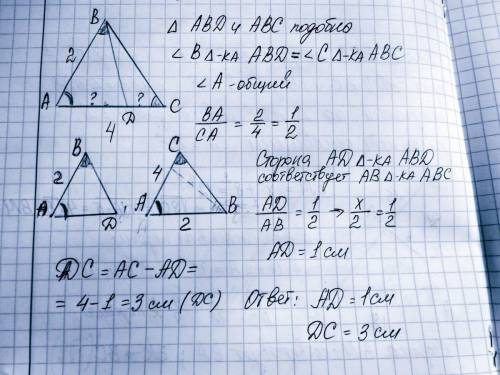 Δ ABD и ABC подобно
∠ B Δ-ка ABD = ∠C Δ-ка ABC
∠ A - общий
BA/CA = 2/4 = 1/2
B
2
A ? D ? C
4
B
2
A D
C
4
A B
2
Сторона AD Δ-ка ABD
соответствует AB Δ-ка ABC
AD/AB = 1/2 → x/2 = 1/2
AD = 1 см
DC = AC - AD =
= 4 - 1 = 3 см (DC)
Ответ: AD = 1 см
DC = 3 см